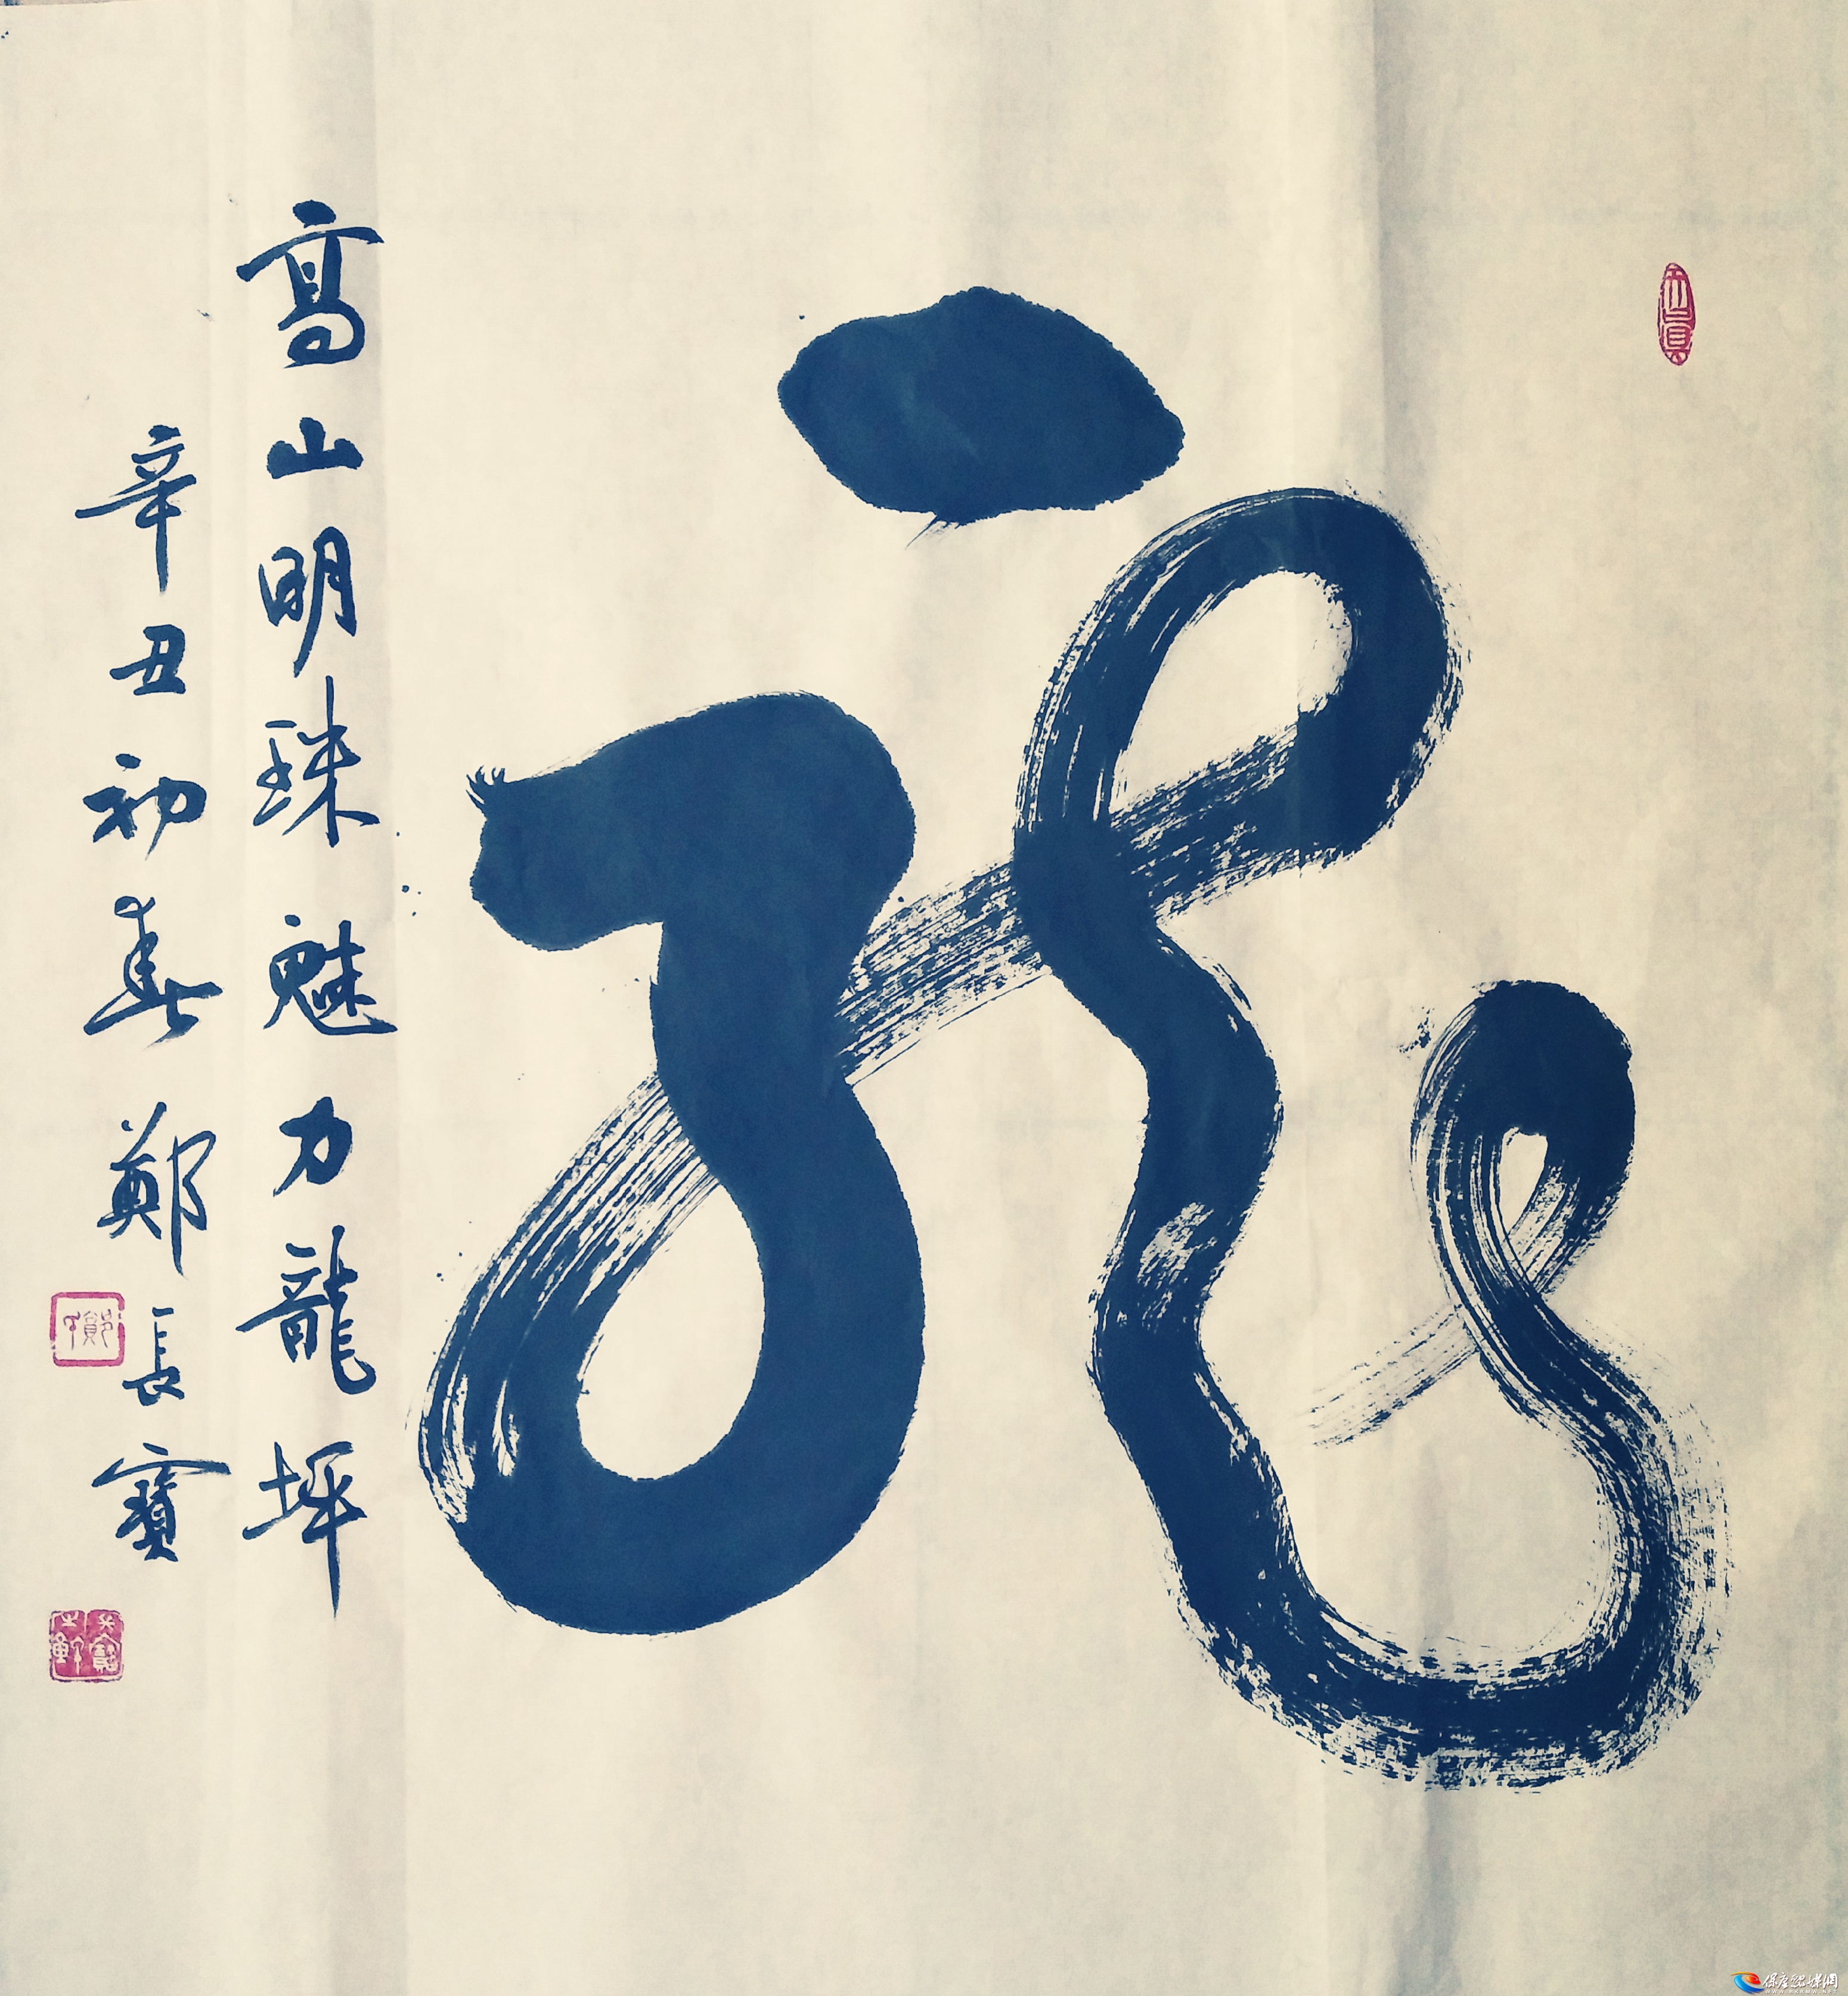 龍
高山明珠魅力龍坪
辛丑初春鄭長寶